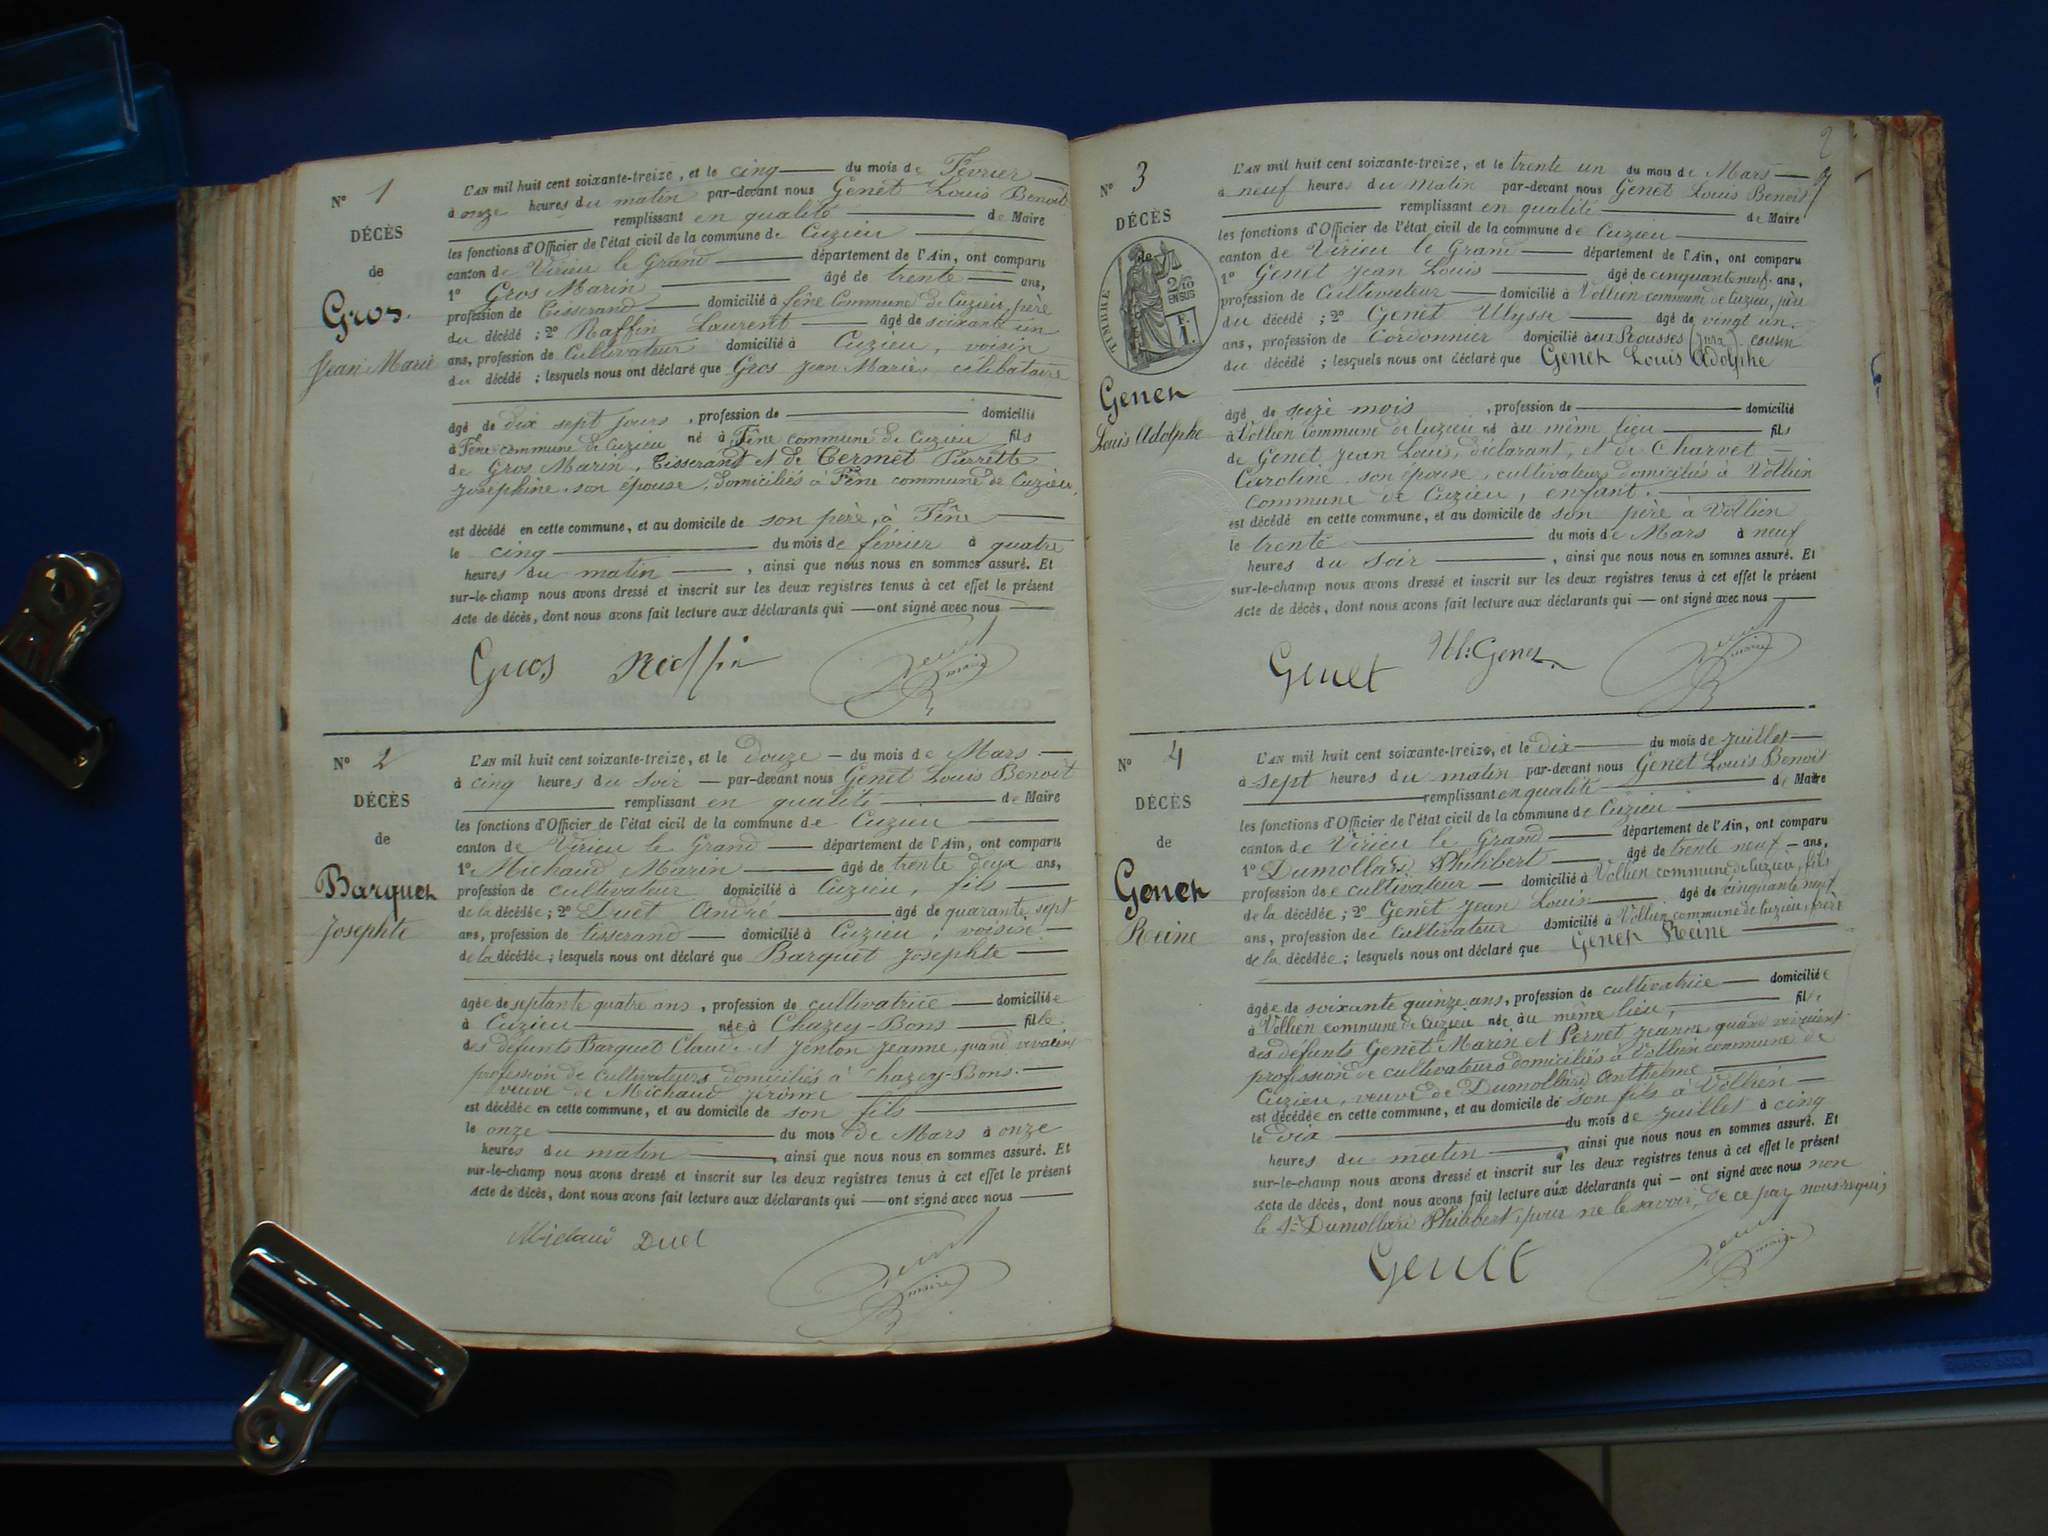 N° 1
DÉCÈS
de
Gros
Jean Marie
L'AN mil huit cent soixante-treize, et le cinq du mois de Février
à onze heures du matin par-devant nous Genet Louis Benoit
remplissant en qualité de Maire
les fonctions d'Officier de l'état civil de la commune de Cuzieu
canton de Virieu le Grand département de l'Ain, ont comparu
1° Gros Marin âgé de trente ans,
profession de Tisserand domicilié à Fêne Commune de Cuzieu, père
du décédé ; 2° Raffin Laurent âgé de soixante un
ans, profession de Cultivateur domicilié à Cuzieu, voisin
du décédé ; lesquels nous ont déclaré que Gros Jean Marie, célibataire
âgé de dix sept jours, profession de domicilié
à Fêne commune de Cuzieu né à Fêne commune de Cuzieu fils
de Gros Marin, Tisserand et de Termet Pierrette
Josephine son épouse, domiciliés à Fêne commune de Cuzieu,
est décédé en cette commune, et au domicile de son père, à Fêne
le cinq du mois de février à quatre
heures du matin , ainsi que nous nous en sommes assuré. Et
sur-le-champ nous avons dressé et inscrit sur les deux registres tenus à cet effet le présent
Acte de décès, dont nous avons fait lecture aux déclarants qui — ont signé avec nous
Gros Raffin Genet maire
N° 2
DÉCÈS
de
Barquet
Josephte
L'AN mil huit cent soixante-treize, et le douze du mois de Mars
à cinq heures du soir par-devant nous Genet Louis Benoit
remplissant en qualité de Maire
les fonctions d'Officier de l'état civil de la commune de Cuzieu
canton de Virieu le Grand département de l'Ain, ont comparu
1° Michaud Marin âgé de trente deux ans,
profession de cultivateur domicilié à Cuzieu, fils
de la décédée; 2° Duet André âgé de quarante sept
ans, profession de tisserand domicilié à Cuzieu, voisin
de la décédée; lesquels nous ont déclaré que Barquet Josephte
âgée de septante quatre ans, profession de cultivatrice domiciliée
à Cuzieu née à Chazey-Bons fille
des défunts Barquet Claude et Jenton Jeanne, quand vivaient
profession de cultivateurs domiciliés à Chazey-Bons.
veuve de Michaud Jérôme
est décédée en cette commune, et au domicile de son fils
le onze du mois de Mars à onze
heures du matin , ainsi que nous nous en sommes assuré. Et
sur-le-champ nous avons dressé et inscrit sur les deux registres tenus à cet effet le présent
Acte de décès, dont nous avons fait lecture aux déclarants qui — ont signé avec nous
Michaud Duet Genet maire
2
N° 3
DÉCÈS
de
TIMBRE
2/10 EN SUS
F. 1.
Genet
Louis Adolphe
L'AN mil huit cent soixante-treize, et le trente un du mois de Mars
à neuf heures du matin par-devant nous Genet Louis Benoit
remplissant en qualité de Maire
les fonctions d'Officier de l'état civil de la commune de Cuzieu
canton de Virieu le Grand département de l'Ain, ont comparu
1° Genet Jean Louis âgé de cinquante neuf ans,
profession de Cultivateur domicilié à Vollien commune de Cuzieu, père
du décédé ; 2° Genet Ulysse âgé de vingt un
ans, profession de Cordonnier domicilié aux Rousses (Jura) cousin
du décédé ; lesquels nous ont déclaré que Genet Louis Adolphe
âgé de seize mois , profession de domicilié
à Vollien commune de Cuzieu né au même lieu fils
de Genet Jean Louis, déclarant, et de Charvet
Caroline son épouse, cultivateurs domiciliés à Vollien
Commune de Cuzieu, enfant.
est décédé en cette commune, et au domicile de son père à Vollien
le trente du mois de Mars à neuf
heures du soir , ainsi que nous nous en sommes assuré. Et
sur-le-champ nous avons dressé et inscrit sur les deux registres tenus à cet effet le présent
Acte de décès, dont nous avons fait lecture aux déclarants qui — ont signé avec nous
Genet Ul: Genet Genet maire
N° 4
DÉCÈS
de
Genet
Reine
L'AN mil huit cent soixante-treize, et le dix du mois de juillet
à sept heures du matin par-devant nous Genet Louis Benoit
remplissant en qualité de Maire
les fonctions d'Officier de l'état civil de la commune de Cuzieu
canton de Virieu le Grand département de l'Ain, ont comparu
1° Dumollard Philibert âgé de trente neuf ans,
profession de cultivateur domicilié à Vollien commune de Cuzieu, fils
de la décédée; 2° Genet Jean Louis âgé de cinquante neuf
ans, profession de cultivateur domicilié à Vollien commune de Cuzieu, frère
de la décédée; lesquels nous ont déclaré que Genet Reine
âgée de soixante quinze ans, profession de cultivatrice domiciliée
à Vollien commune de Cuzieu née au même lieu, fille
des défunts Genet Marin et Pernet Jeanne, quand vivaient
profession de cultivateurs domiciliés à Vollien commune de
Cuzieu, veuve de Dumollard Anthelme
est décédée en cette commune, et au domicile de son fils à Vollien
le dix du mois de juillet à cinq
heures du matin , ainsi que nous nous en sommes assuré. Et
sur-le-champ nous avons dressé et inscrit sur les deux registres tenus à cet effet le présent
Acte de décès, dont nous avons fait lecture aux déclarants qui — ont signé avec nous non
le sr Dumollard Philibert, pour ne le savoir, de ce par nous requis
Genet Genet maire